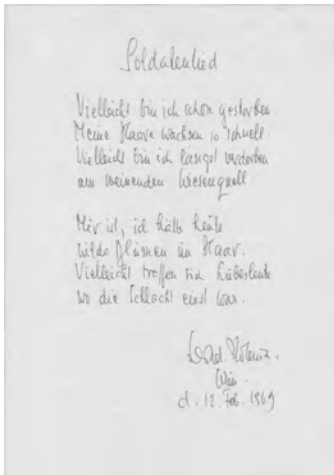 Soldatenlied
Vielleicht bin ich schon gestorben.
Meine Haare wachsen so schnell.
Vielleicht bin ich längst verdorben
am weinenden Wiesenquell.
Mir ist, ich hätt heute
wilde Blumen im Haar.
Vielleicht treffen sich Liebesleute
wo die Schlacht einst war.
Wien.
d. 12. Feb. 1969